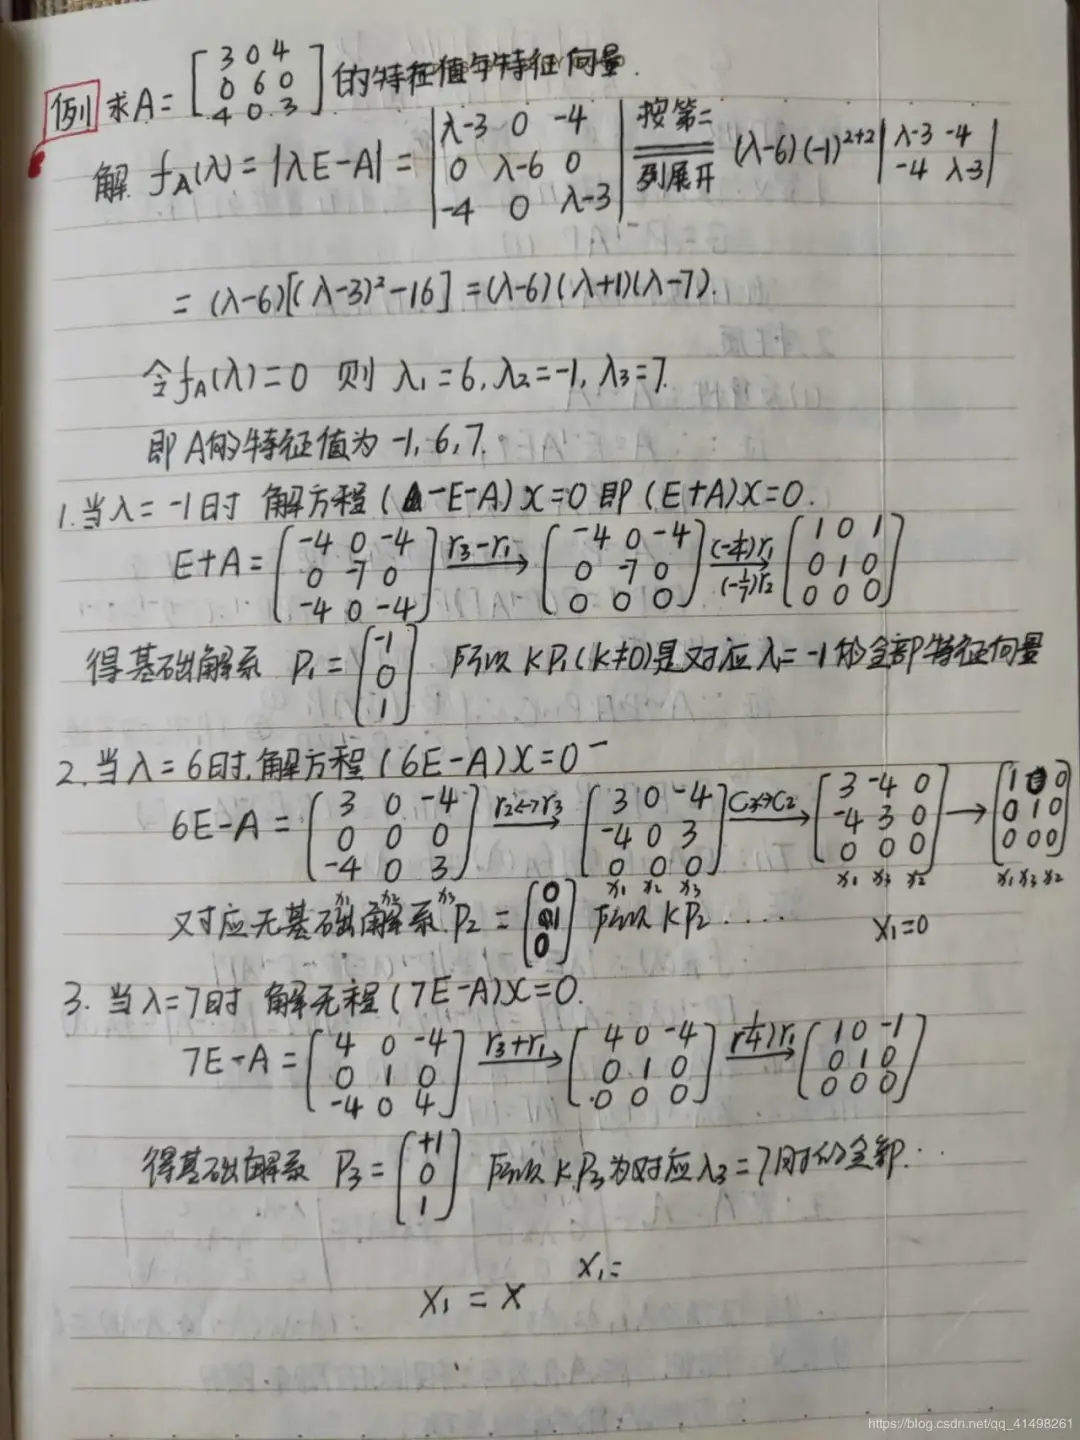 例 求A=[3 0 4
0 6 0
4 0 3] 的特征值与特征向量.
解 f_A(λ)=|λE-A|=|λ-3 0 -4
0 λ-6 0
-4 0 λ-3| 按第二列展开 (λ-6)(-1)^{2+2}|λ-3 -4
-4 λ-3|
=(λ-6)[(λ-3)²-16]=(λ-6)(λ+1)(λ-7).
令f_A(λ)=0 则 λ₁=6, λ₂=-1, λ₃=7.
即A的特征值为-1, 6, 7.
1.当λ=-1时 解方程(-E-A)x=0即(E+A)x=0.
E+A=[-4 0 -4
0 -7 0
-4 0 -4] r₃-r₁→ [-4 0 -4
0 -7 0
0 0 0] (-1/4)r₁ (-1/7)r₂→ [1 0 1
0 1 0
0 0 0]
得基础解系 P₁=[-1
0
1] 所以kP₁(k≠0)是对应λ=-1的全部特征向量
2.当λ=6时.解方程(6E-A)x=0
6E-A=[3 0 -4
0 0 0
-4 0 3] r₂↔r₃→ [3 0 -4
-4 0 3
0 0 0] C₃↔C₂→ [3 -4 0
-4 3 0
0 0 0] → [1 0 0
0 1 0
0 0 0]
x₁ x₂ x₃ x₁ x₃ x₂ x₁ x₃ x₂
x₁ x₂ x₃
对应无基础解系.P₂=[0
1
0] 所以kP₂ .....
x₁=0
3. 当λ=7时 解无程(7E-A)x=0.
7E-A=[4 0 -4
0 1 0
-4 0 4] r₃+r₁→ [4 0 -4
0 1 0
0 0 0] (1/4)r₁→ [1 0 -1
0 1 0
0 0 0]
得基础解系 P₃=[+1
0
1] 所以kP₃为对应λ₃=7时的全部...
x₁=
x₁=x
https://blog.csdn.net/qq_41498261